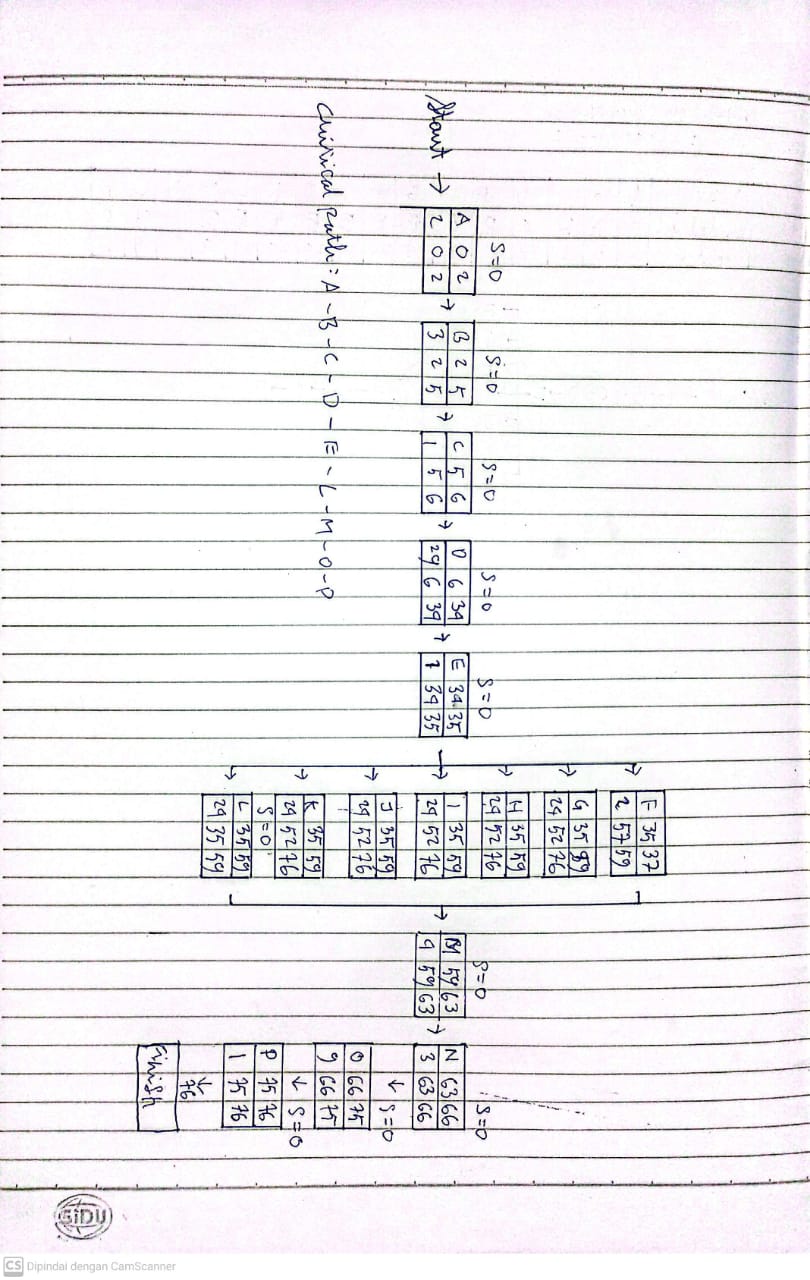 Start →
S=0
A 0 2
2 0 2
S=0
B 2 5
3 2 5
S=0
C 5 6
1 5 6
S=0
D 6 34
29 6 34
S=0
E 34 35
1 34 35
F 35 37
2 57 59
G 35 59
24 52 76
H 35 59
24 52 76
I 35 59
24 52 76
J 35 59
24 52 76
K 35 59
24 52 76
S=0
L 35 59
24 35 59
S=0
M 59 63
4 59 63
S=0
N 63 66
3 63 66
S=0
O 66 75
9 66 75
S=0
P 75 76
1 75 76
76
Finish
Critical path : A - B - C - D - E - L - M - O - P
SiDU
CS Dipindai dengan CamScanner